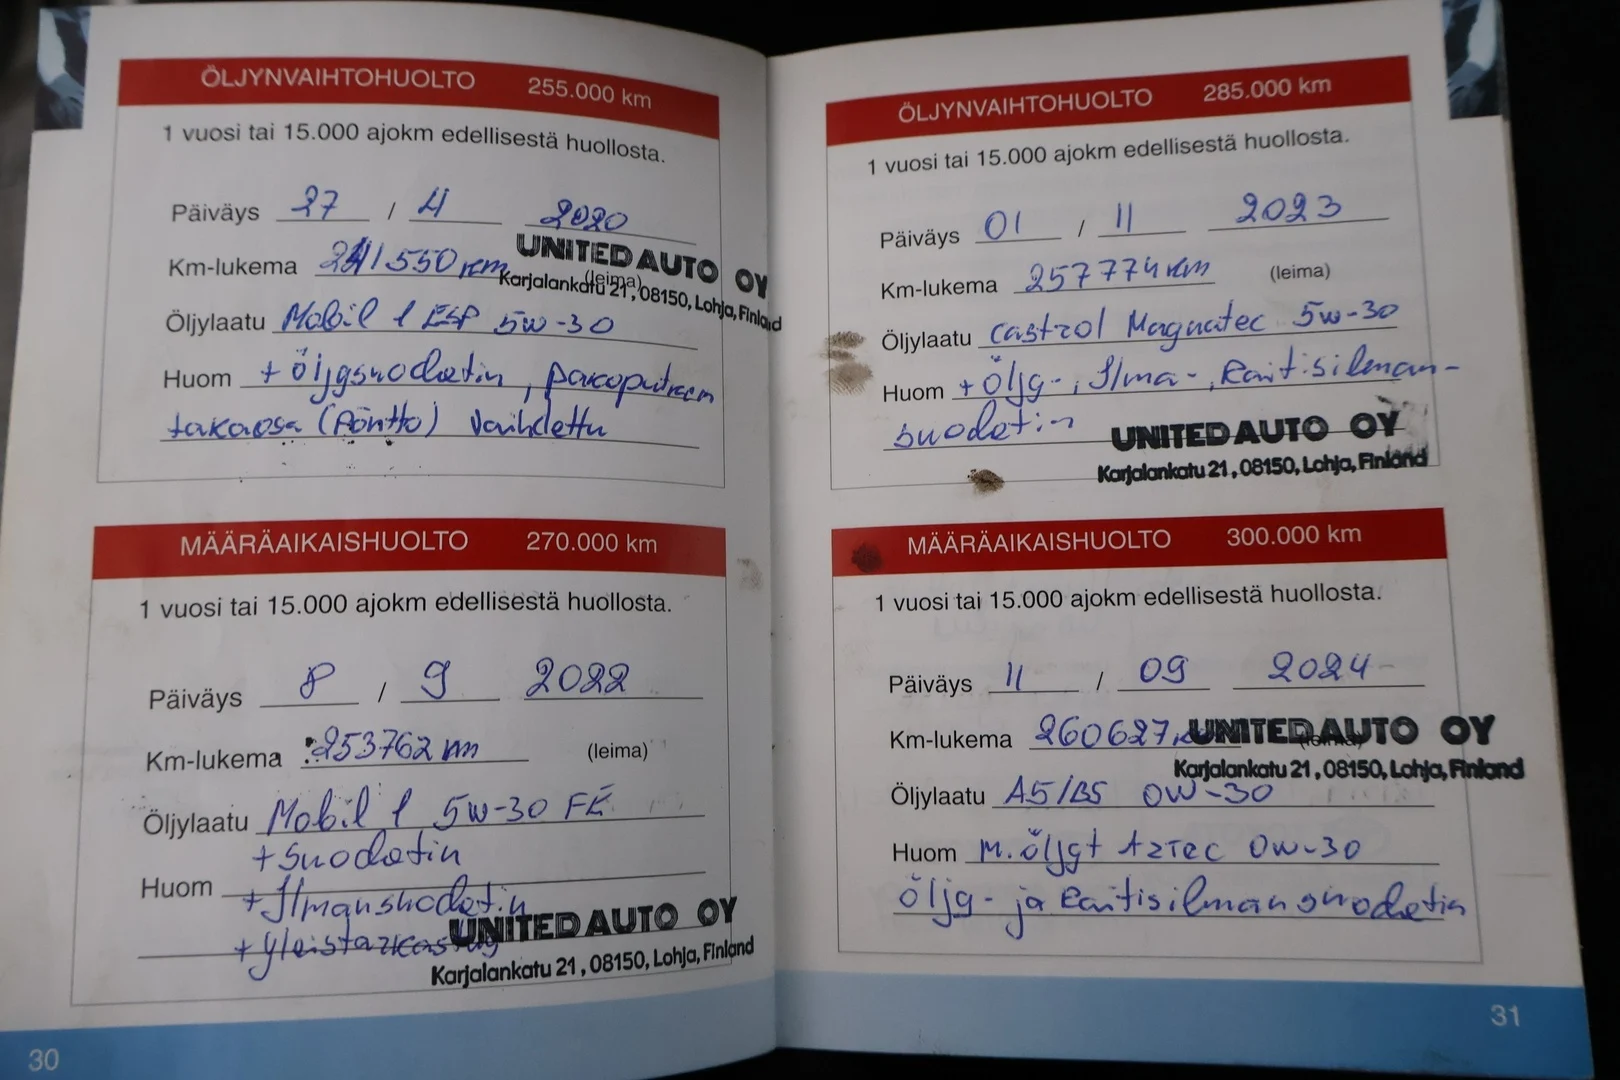 ÖLJYNVAIHTOHUOLTO 255.000 km
1 vuosi tai 15.000 ajokm edellisestä huollosta.
Päiväys 27 / 4 2020
Km-lukema 241550 km (leima)
UNITED AUTO OY
Karjalankatu 21, 08150, Lohja, Finland
Öljylaatu Mobil 1 ESP 5W-30
Huom + öljysuodatin, pakoputken
takaosa (Pöntto) vaihdettu
MÄÄRÄAIKAISHUOLTO 270.000 km
1 vuosi tai 15.000 ajokm edellisestä huollosta.
Päiväys 8 / 9 2022
Km-lukema 253762 km (leima)
Öljylaatu Mobil 1 5W-30 FE
+ suodatin
Huom + Ilmansuodatin
+ yleistarkastus
UNITED AUTO OY
Karjalankatu 21, 08150, Lohja, Finland
30
ÖLJYNVAIHTOHUOLTO 285.000 km
1 vuosi tai 15.000 ajokm edellisestä huollosta.
Päiväys 01 / 11 2023
Km-lukema 257774 km (leima)
Öljylaatu castrol Magnatec 5w-30
Huom + öljy-, Ilma-, Raitisilman-
suodatin
UNITED AUTO OY
Karjalankatu 21, 08150, Lohja, Finland
MÄÄRÄAIKAISHUOLTO 300.000 km
1 vuosi tai 15.000 ajokm edellisestä huollosta.
Päiväys 11 / 09 2024
Km-lukema 260627, km (leima)
UNITED AUTO OY
Karjalankatu 21, 08150, Lohja, Finland
Öljylaatu A5/B5 0W-30
Huom M.öljyt AZTEC 0W-30
öljy- ja Raitisilmansuodatin
31